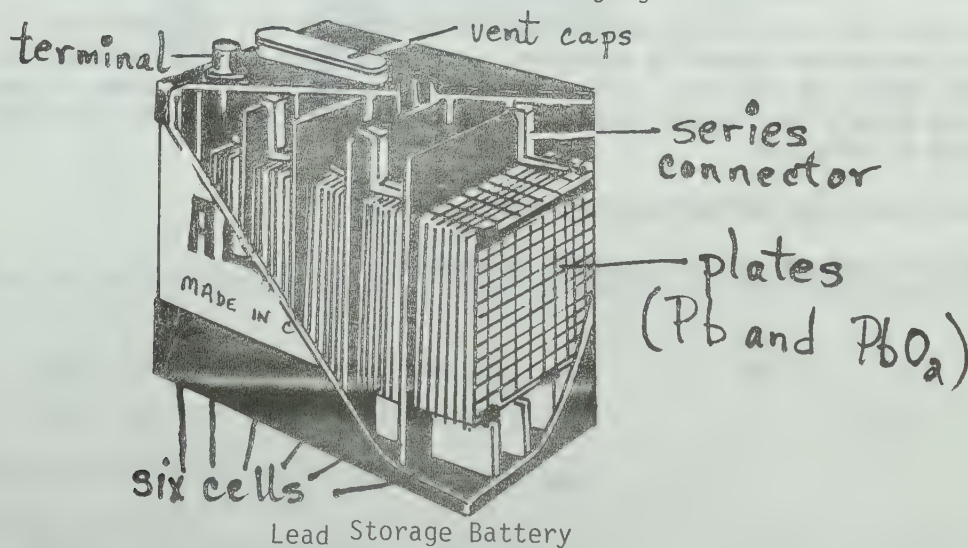 terminal
vent caps
series
connector
plates
(Pb and PbO₂)
MADE IN C
six cells
Lead Storage Battery